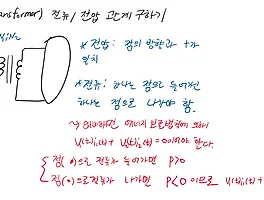 ansformer) 전류/전압 관계 구하기
* 전압: 점의 방향과 +가
일치
* 전류: 하나는 점으로 들어가면
하나는 점으로 나가야 함.
→ 왜냐하면 에너지 보존법칙에 의해
V₁(t)i₁(t) + V₂(t)i₂(t) = 0이어야 한다.
점(•)으로 전류가 들어가면 P>0
점(•)으로 전류가 나가면 P<0 이므로